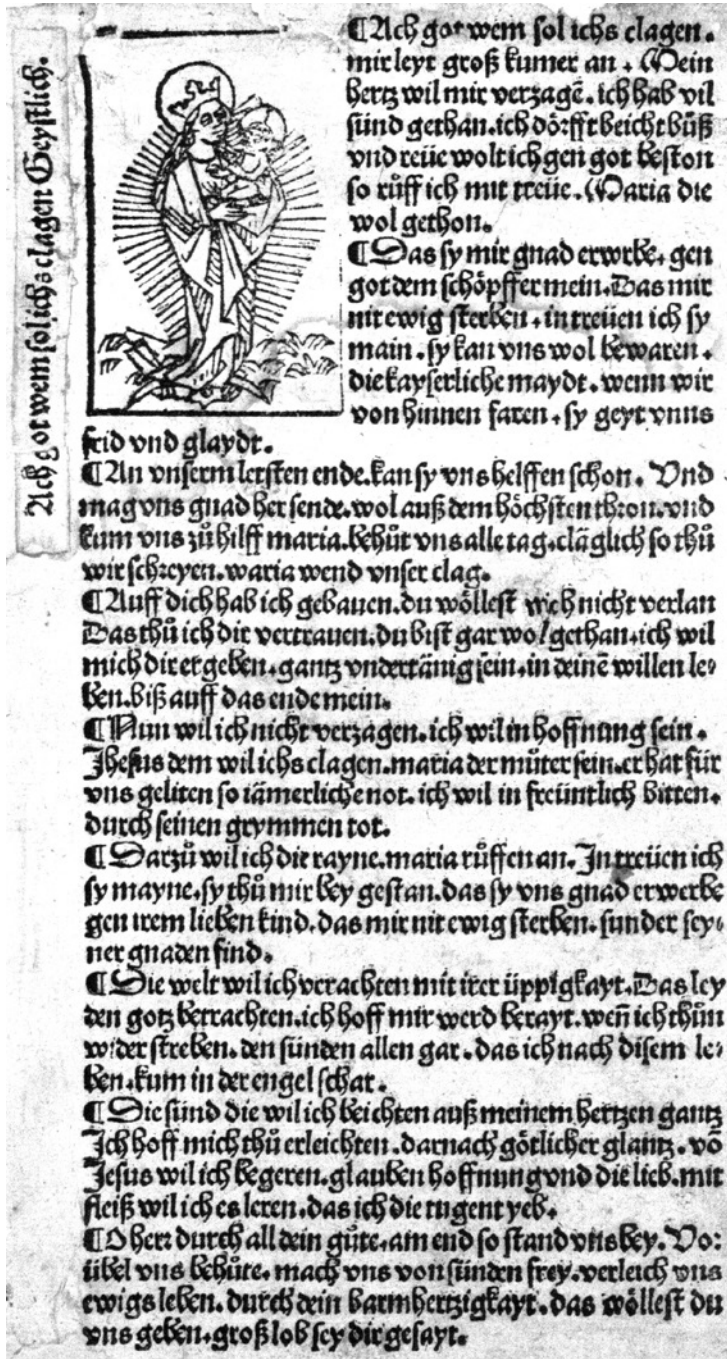 Ach got wem sol ichs clagen Geystlich.
¶Ach got wem sol ichs clagen.
mir leyt groß kumer an. Mein
hertz wil mir verzagē. ich hab vil
sünd gethan. ich dörfft beicht büß
vnd reüe wolt ich gen got beston
so růff ich mit treüe. Maria die
wol gethon.
¶Das sy mir gnad erwerbe. gen
got dem schöpffer mein. Das mir
nit ewig sterben. in treüen ich sy
main. sy kan vns wol bewaren.
die kayserliche maydt. wenn wir
von hinnen faren. sy geyt vnns
frid vnd glaydt.
¶An vnserm letsten ende. kan sy vns helffen schon. Vnd
mag vns gnad her sende. wol auß dem höchsten thron. vnd
kum vns zů hilff maria. behüt vns alle tag. cläglich so thů
wir schreyen. waria wend vnser clag.
¶Auff dich hab ich gebauen. du wöllest mich nicht verlan
Das thů ich dir vertrauen. du bist gar wol gethan. ich wil
mich dir ergeben. gantz vndertänig sein. in deinē willen le-
ben. biß auff das ende mein.
¶Nun wil ich nicht verzagen. ich wil in hoffnung sein.
Jhesus dem wil ichs clagen. maria der můter sein. er hat für
vns geliten so iämerliche not. ich wil in freüntlich bitten.
durch seinen grymmen tot.
¶Darzů wil ich die rayne. maria růffen an. In treüen ich
sy mayne. sy thů mir bey gestan. das sy vns gnad erwerbe
gen irem lieben kind. das mir nit ewig sterben. sunder sey-
ner gnaden find.
¶Die welt wil ich verachten mit irer üppigkayt. Das ley
den gotz betrachten. ich hoff mir werd berayt. weñ ich thůn
wider streben. den sünden allen gar. das ich nach disem le-
ben. kum in der engel schar.
¶Die sünd die wil ich beichten auß meinem hertzen gantz
Ich hoff mich thů erleichten. darnach götlicher glantz. vō
Jesus wil ich begeren. glauben hoffnung vnd die lieb. mit
fleiß wil ich es leren. das ich die tugent yeb.
¶O herr durch all dein güte. am end so stand vns bey. Vor
übel vns behüte. mach vns von sünden frey. verleich vns
ewigs leben. durch dein barmhertzigkayt. das wöllest du
vns geben. groß lob sey dir gesayt.